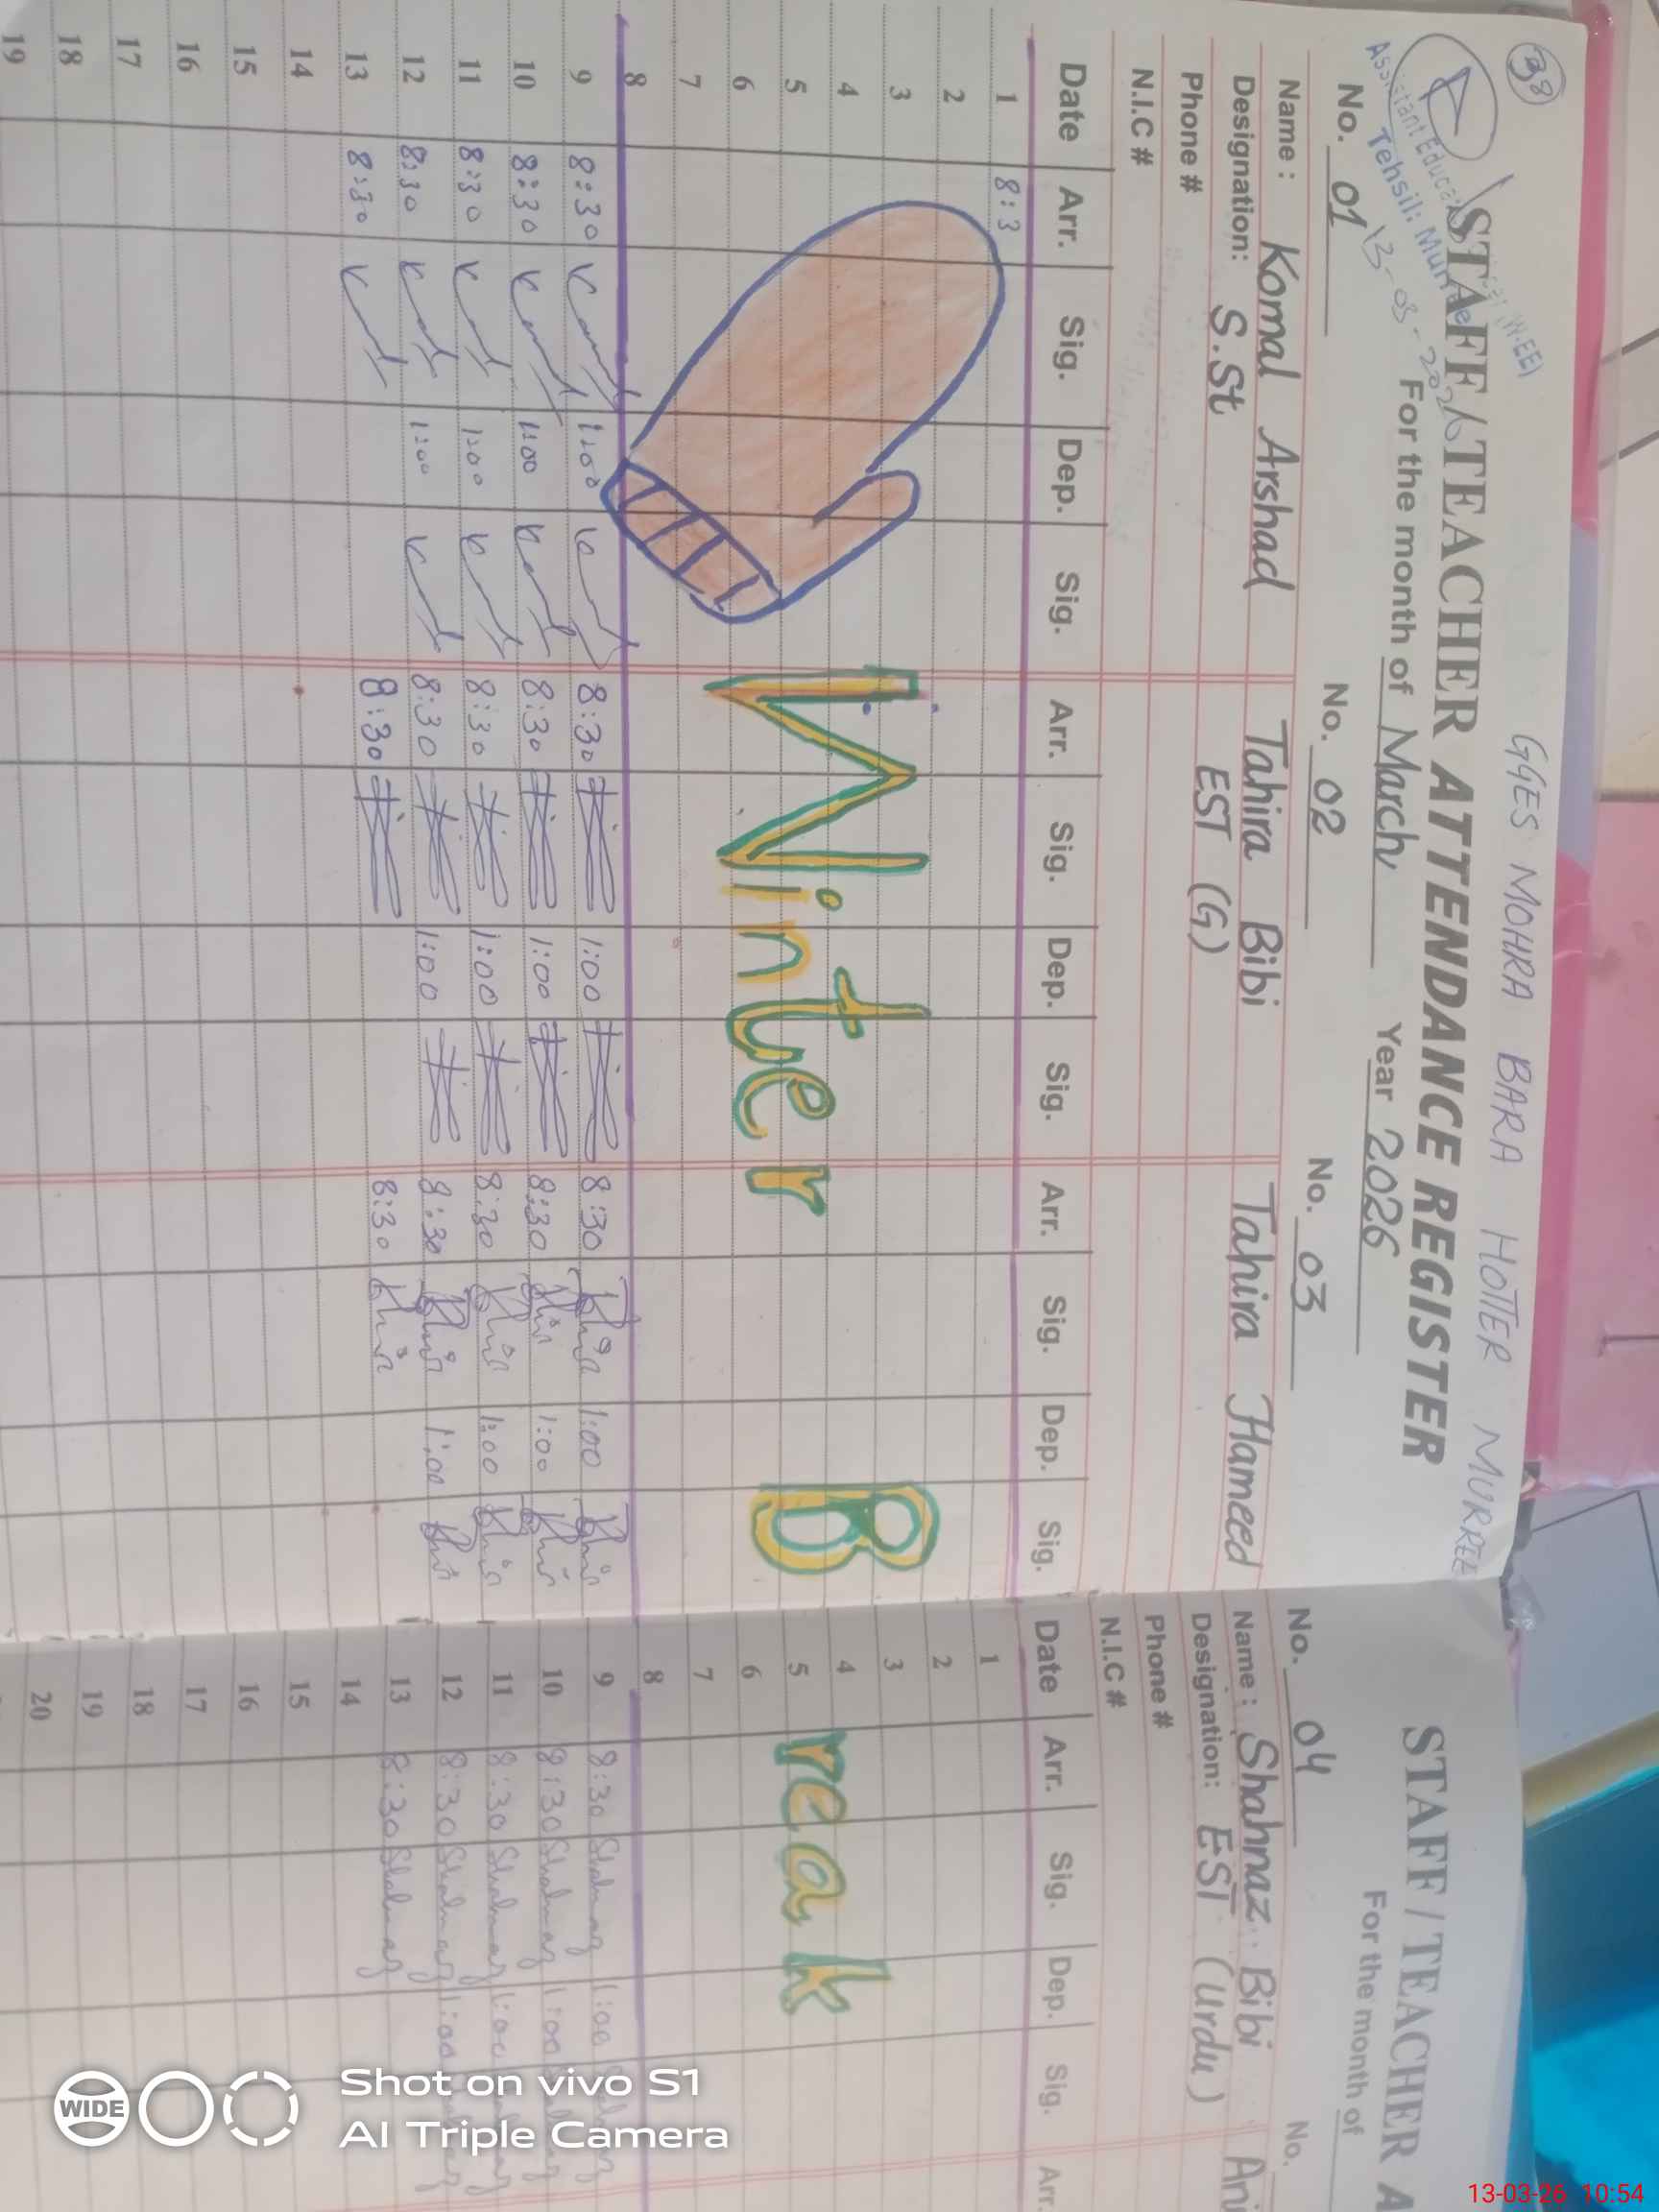 38
GGES MOHRA BARA HOTTER MURREE
STAFF / TEACHER ATTENDANCE REGISTER
Assistant Educa
Tehsil: Murree
13-03-2026
For the month of March Year 2026
No. 01 No. 02 No. 03
Name: Komal Arshad Tahira Bibi Tahira Hameed
Designation: S.St EST (G)
Phone #
N.I.C #
Date Arr. Sig. Dep. Sig. Arr. Sig. Dep. Sig. Arr. Sig. Dep. Sig.
1 8:3
2
3
4
5
6
7
8
Winter B
9 8:30 1:00 8:30 1:00 8:30 1:00
10 8:30 1:00 8:30 1:00 8:30 1:00
11 8:30 1:00 8:30 1:00 8:30 1:00
12 8:30 1:00 8:30 1:00 8:30 1:00
13 8:30 8:30 8:30
14
15
16
17
18
19
STAFF / TEACHER A
For the month of
No. 04 No.
Name: Shahnaz Bibi Ani
Designation: EST (Urdu)
Phone #
N.I.C #
Date Arr. Sig. Dep. Sig. Arr.
1
2
3
4
5
6
7
8
reak
9 8:30 Shahnaz 1:00
10 8:30 Shahnaz 1:00
11 8:30 Shahnaz 1:00
12 8:30 Shahnaz 1:00
13 8:30 Shahnaz
14
15
16
17
18
19
20
WIDE
Shot on vivo S1
AI Triple Camera
13-03-26 10:54